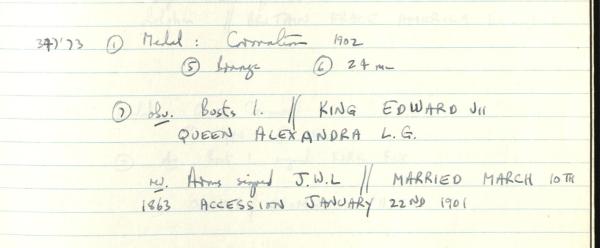 347'73 ① Medal : Coronation 1902
⑤ bronze ⑥ 24 mm
⑦ obv. Busts l. // KING EDWARD VII
QUEEN ALEXANDRA L.G.
rev. Arms signed J.W.L // MARRIED MARCH 10TH
1863 ACCESSION JANUARY 22ND 1901